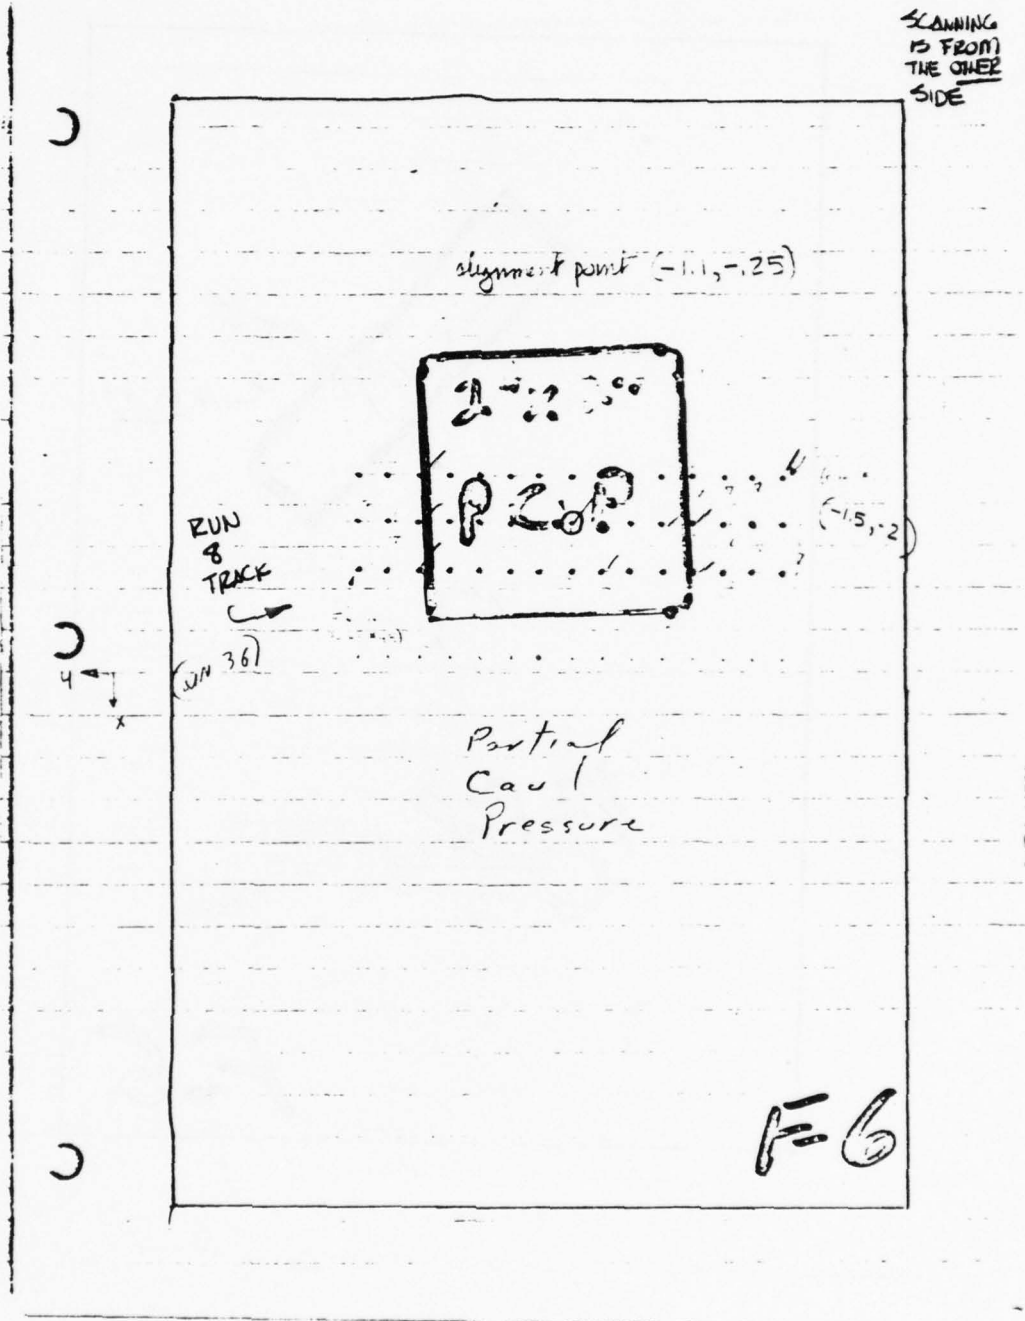 SCANNING
IS FROM
THE OTHER
SIDE
alignment point (-1.1, -.25)
PCP
(-1.5, -2)
RUN
8
TRACK
(RUN 36)
y
x
Partial
Caul
Pressure
F-6